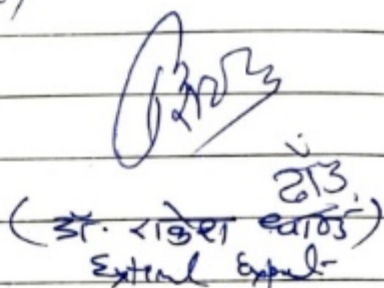 ढांड
(डॉ. राकेश ढाण्ड)
External Expert